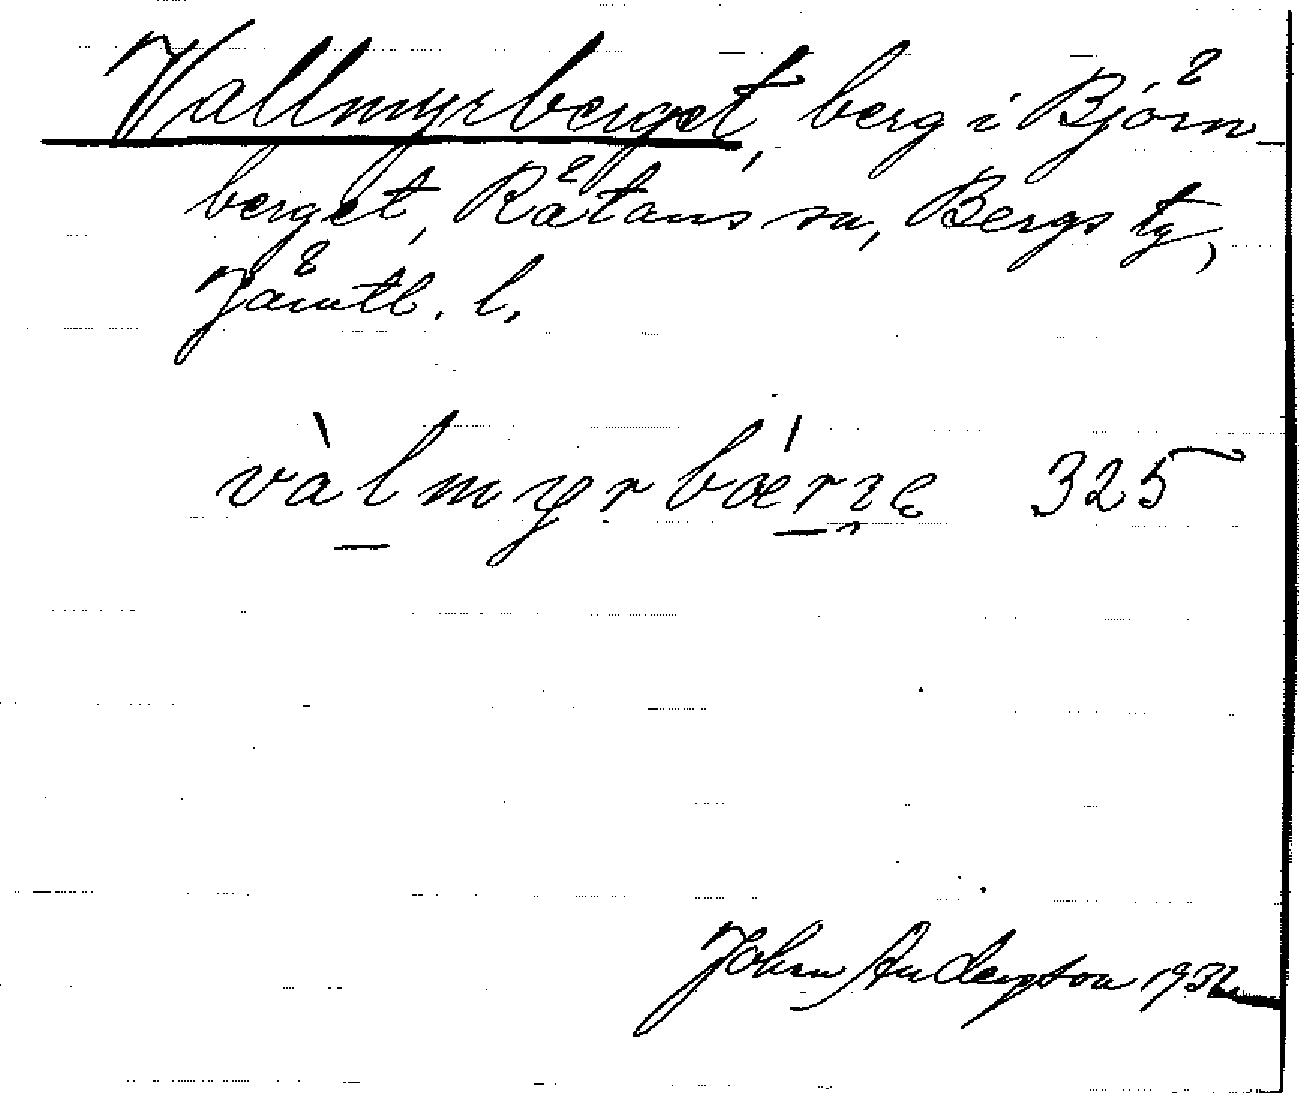 Vallmyrberget, berg i Björn-
berget, Rätans sn, Bergs tg,
Jämtl. l.
vàlmyrbǽrʒe 325
John Anderson 1932